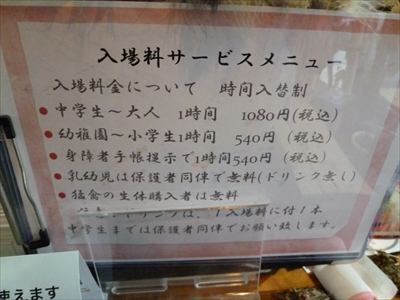 入場料サービスメニュー
入場料金について 時間入替制
● 中学生～大人 1時間 1080円(税込)
● 幼稚園～小学生1時間 540円 (税込)
● 身障者手帳提示で1時間540円 (税込)
● 乳幼児は保護者同伴で無料(ドリンク無し)
● 猛禽の生体購入者は無料
ドリンクは、1入場料に付1本
中学生までは保護者同伴でお願い致します。
使えます